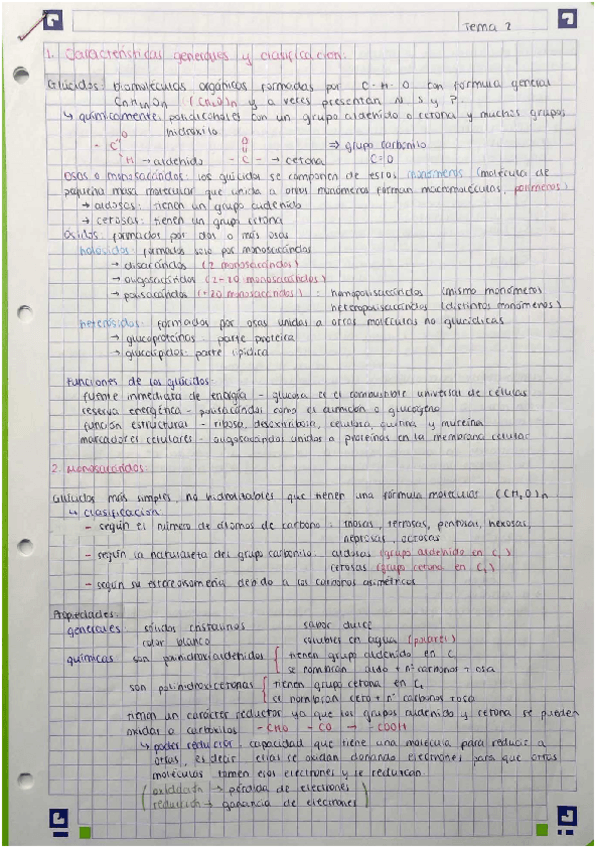 Tema 2
1. Características generales y clasificación:
Glúcidos: biomoléculas orgánicas formadas por C-H-O con fórmula general
CnH2nOn (CH2O)n y a veces presentan N S y P.
↳ químicamente: polialcoholes con un grupo aldehído o cetona y muchos grupos
hidroxilo
- C O H → aldehído - C - O → cetona ⇒ grupo carbonilo C=O
Osas o monosacáridos: los glúcidos se componen de estos monómeros (molécula de
pequeña masa molecular que unida a otros monómeros forman macromoléculas, polímeros)
→ aldosas: tienen un grupo aldehído
→ cetosas: tienen un grupo cetona
Ósidos: formados por dos o más osas
holósidos: formados solo por monosacáridos
→ disacáridos (2 monosacáridos)
→ oligosacáridos (2-20 monosacáridos)
→ polisacáridos (+20 monosacáridos) : homopolisacáridos (mismo monómeros
heteropolisacáridos (distintos monómeros)
heterósidos: formados por osas unidas a otras moléculas no glucídicas
→ glucoproteínas: parte proteica
→ glucolípidos: parte lipídica
Funciones de los glúcidos:
fuente inmediata de energía - glucosa es el combustible universal de células
reserva energética - polisacáridos como el almidón o glucógeno
función estructural - ribosa, desoxirribosa, celulosa, quitina, y mureína
marcadores celulares - oligosacáridos unidos a proteínas en la membrana celular
2. Monosacáridos:
Glúcidos más simples, no hidrolizables que tienen una fórmula molecular (CH2O)n
↳ clasificación:
- según el número de átomos de carbono : triosas, tetrosas, pentosas, hexosas,
heptosas, octosas
- según la naturaleza del grupo carbonilo: aldosas (grupo aldehído en C1)
cetosas (grupo cetona en C2)
- según su estereoisomería debido a los carbonos asimétricos
Propiedades:
generales: sólidos cristalinos sabor dulce
color blanco solubles en agua (polares)
químicas son polihidroxialdehídos { tienen grupo aldehído en C1
se nombran aldo + nº carbonos + osa
son polihidroxicetonas { tienen grupo cetona en C2
se nombran ceto + nº carbonos + osa
tienen un carácter reductor ya que los grupos aldehído y cetona se pueden
oxidar a carboxilos -CHO -CO → -COOH
↳ poder reductor: capacidad que tiene una molécula para reducir a
otras, es decir ellas se oxidan donando electrones para que otras
moléculas tomen esos electrones y se reduzcan
(oxidación → pérdida de electrones
reducción → ganancia de electrones)